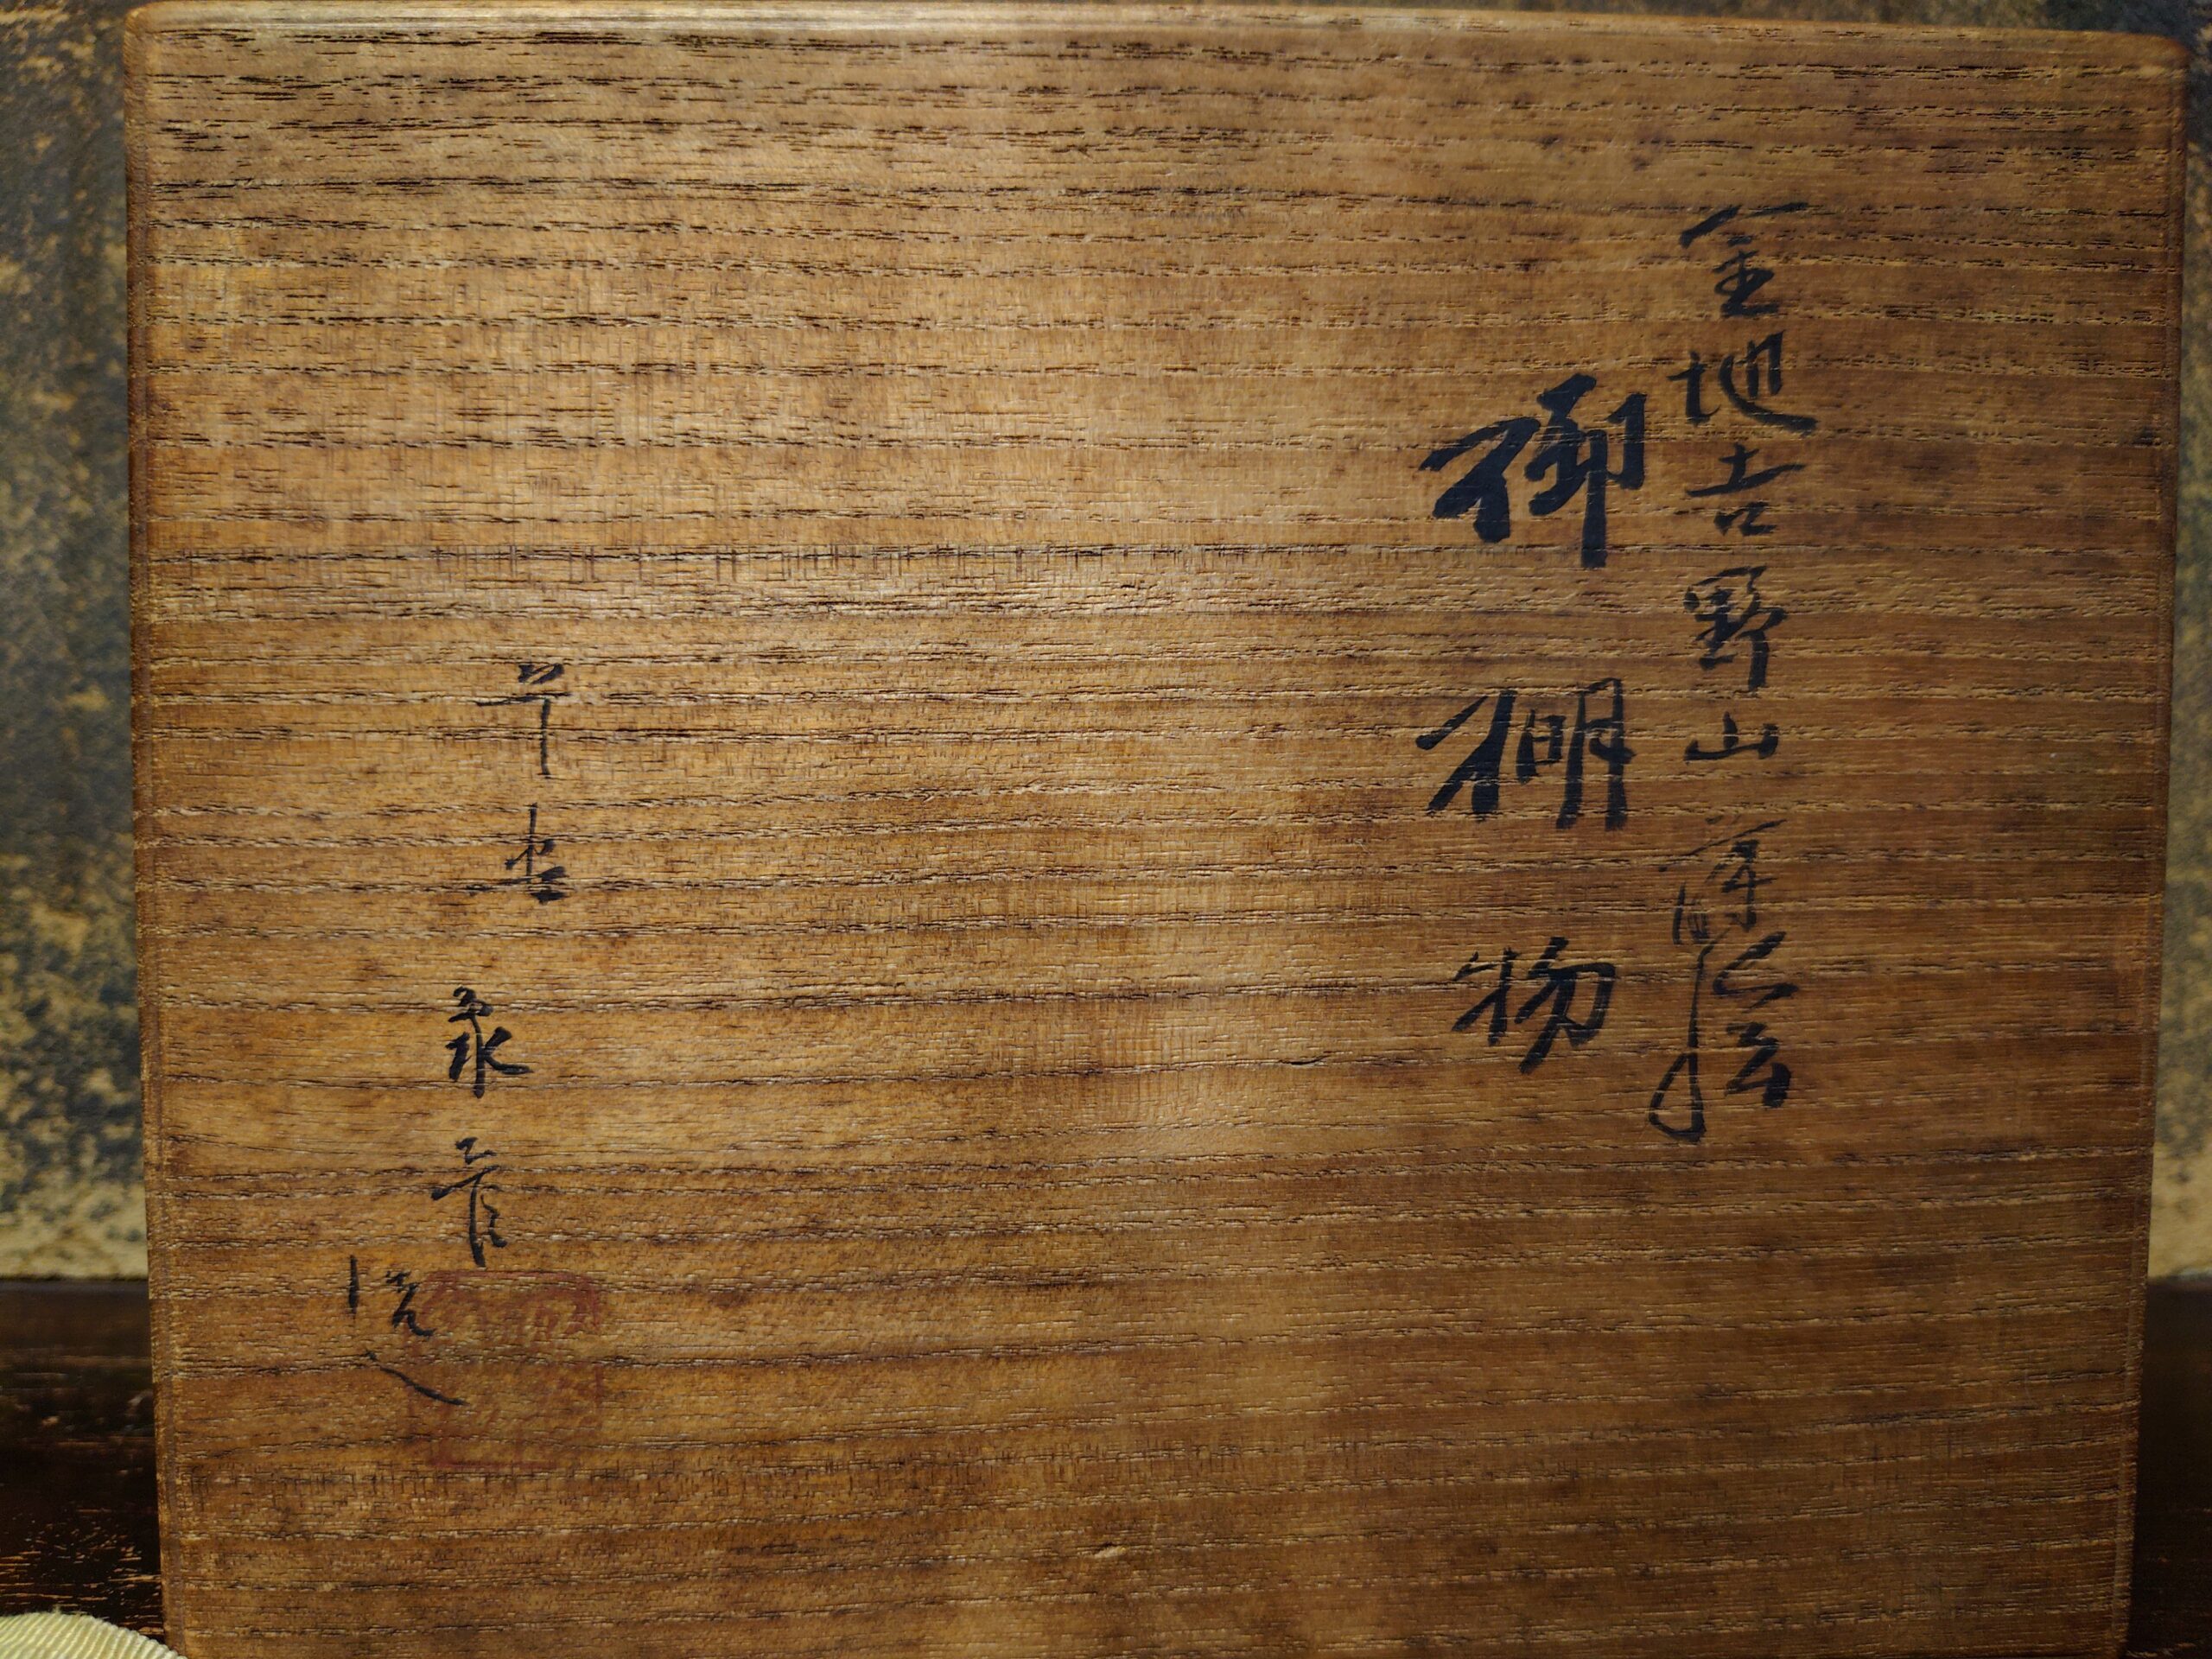 金地吉野山蒔絵
御棚物
平安 象彦造